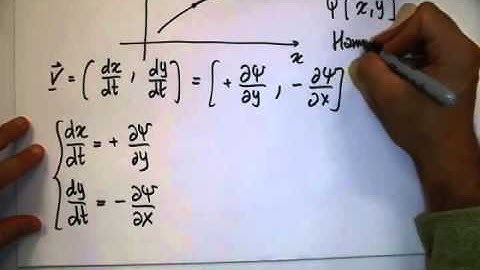 Ψ[x,y]
x
Ham
v⃗ = ( dx/dt , dy/dt ) = [ + ∂Ψ/∂y , - ∂Ψ/∂x ]
{ dx/dt = + ∂Ψ/∂y
dy/dt = - ∂Ψ/∂x